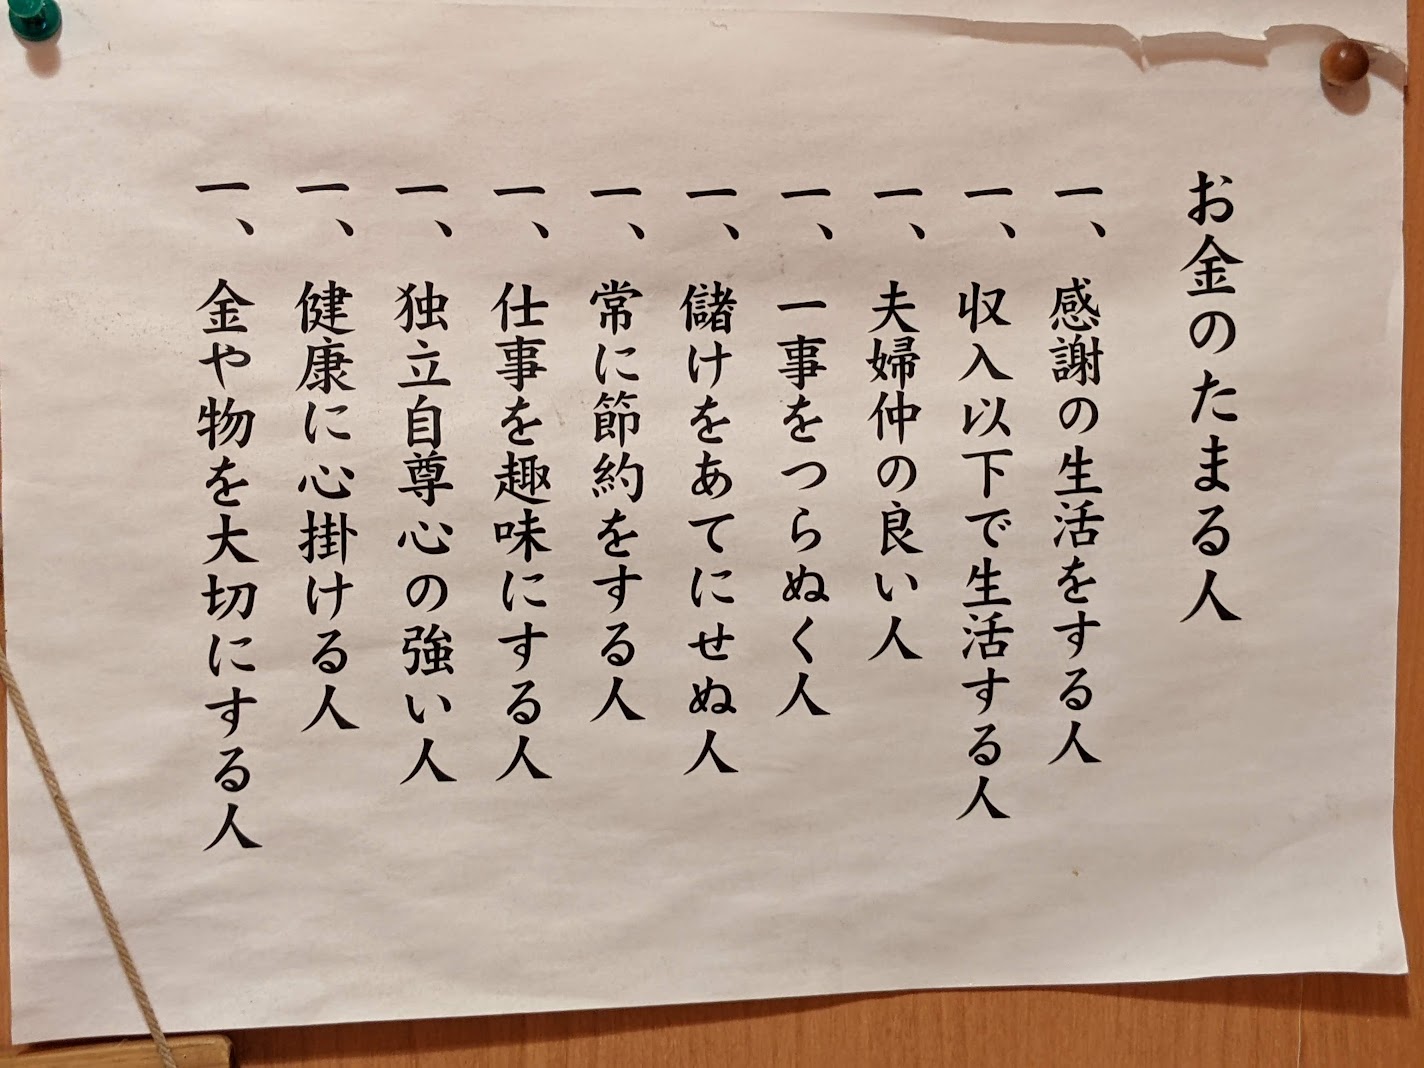 お金のたまる人
一、感謝の生活をする人
一、収入以下で生活する人
一、夫婦仲の良い人
一、一事をつらぬく人
一、儲けをあてにせぬ人
一、常に節約をする人
一、仕事を趣味にする人
一、独立自尊心の強い人
一、健康に心掛ける人
一、金や物を大切にする人